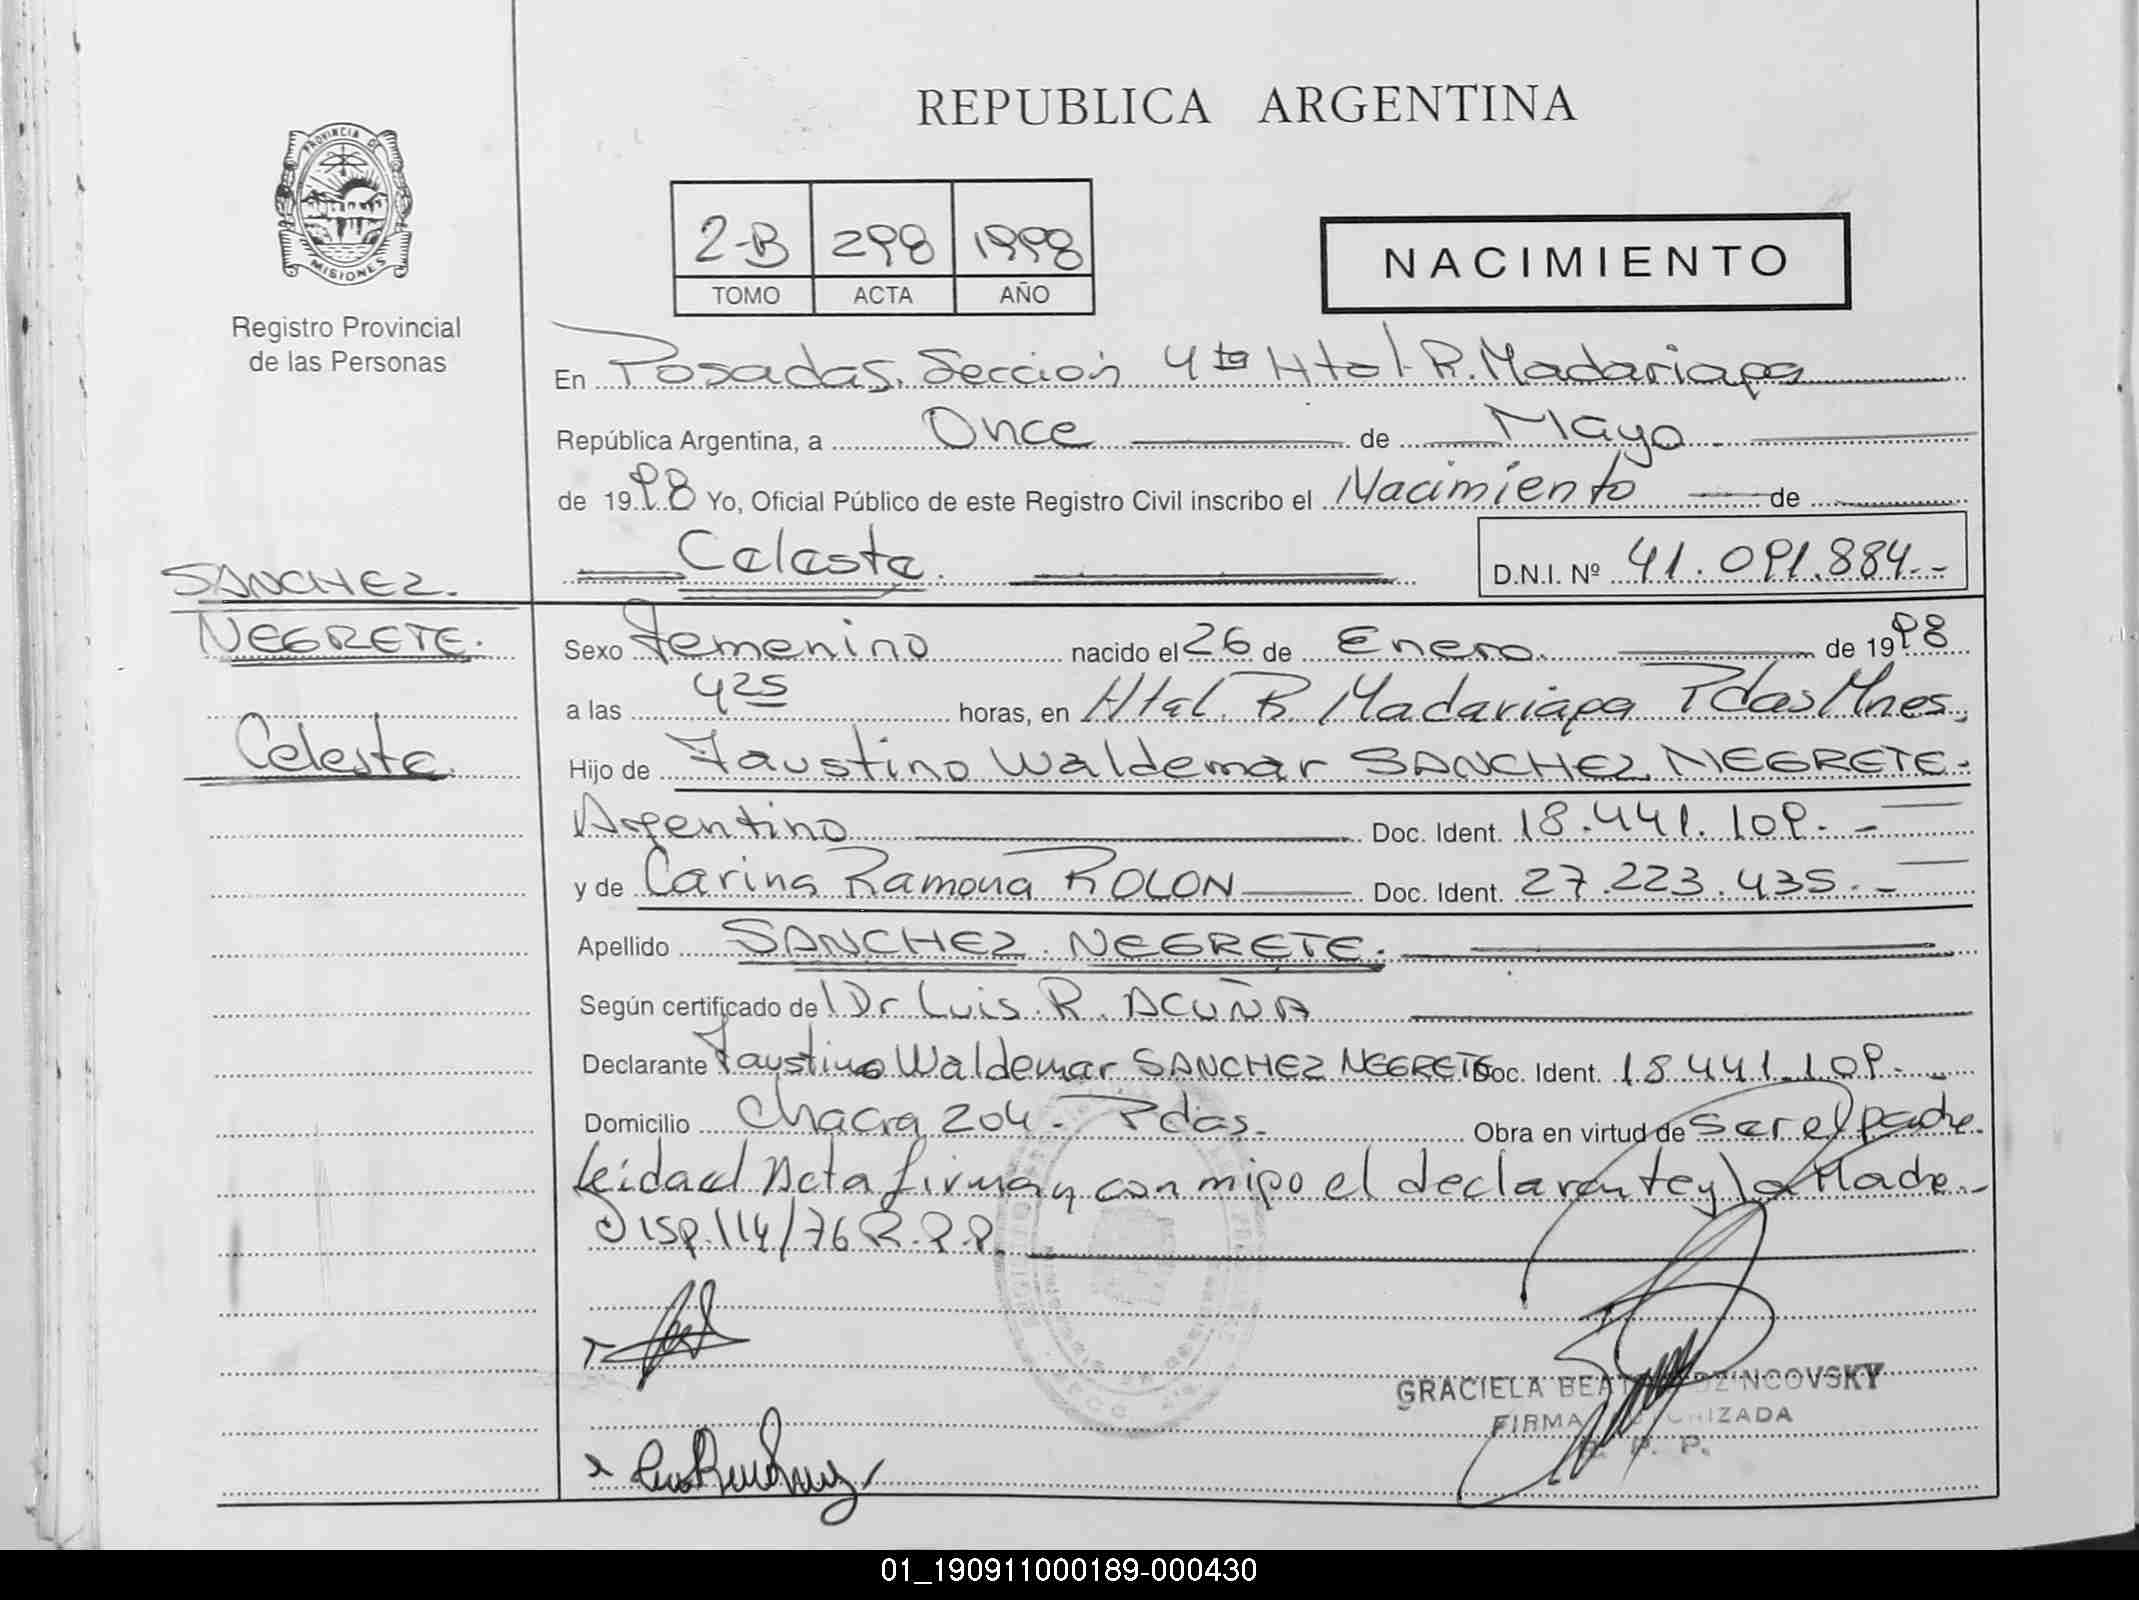 REPUBLICA ARGENTINA
PROVINCIA DE
MISIONES
Registro Provincial
de las Personas
2-B 298 1998
TOMO ACTA AÑO
NACIMIENTO
En Posadas. Sección 4ta Htal. R. Madariaga
República Argentina, a Once de Mayo
de 1998 Yo, Oficial Público de este Registro Civil inscribo el Nacimiento de
Celeste. D.N.I. Nº 41.091.884.-
SANCHEZ.
NEGRETE.
Celeste.
Sexo Femenino nacido el 26 de Enero. de 1998
a las 425 horas, en Htal. R. Madariaga Pdas Mnes.
Hijo de Faustino Waldemar SANCHEZ NEGRETE.
Argentino Doc. Ident. 18.441.109.-
y de Carina Ramona ROLON Doc. Ident. 27.223.435.-
Apellido SANCHEZ NEGRETE.
Según certificado de Dr Luis R. ACUÑA
Declarante Faustino Waldemar SANCHEZ NEGRETE Doc. Ident. 18.441.109.-
Domicilio Chacra 204. Pdas. Obra en virtud de ser el padre.
leida el Acta firman conmigo el declarante y la Madre.-
Disp. 114/76 R.P.P.
GRACIELA
FIRMA AUTORIZADA
R. P. P.
01_190911000189-000430